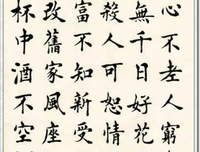 心不老人窮
無千日好花
殺人可恕情
富不知新受
改舊家風座
杯中酒不空